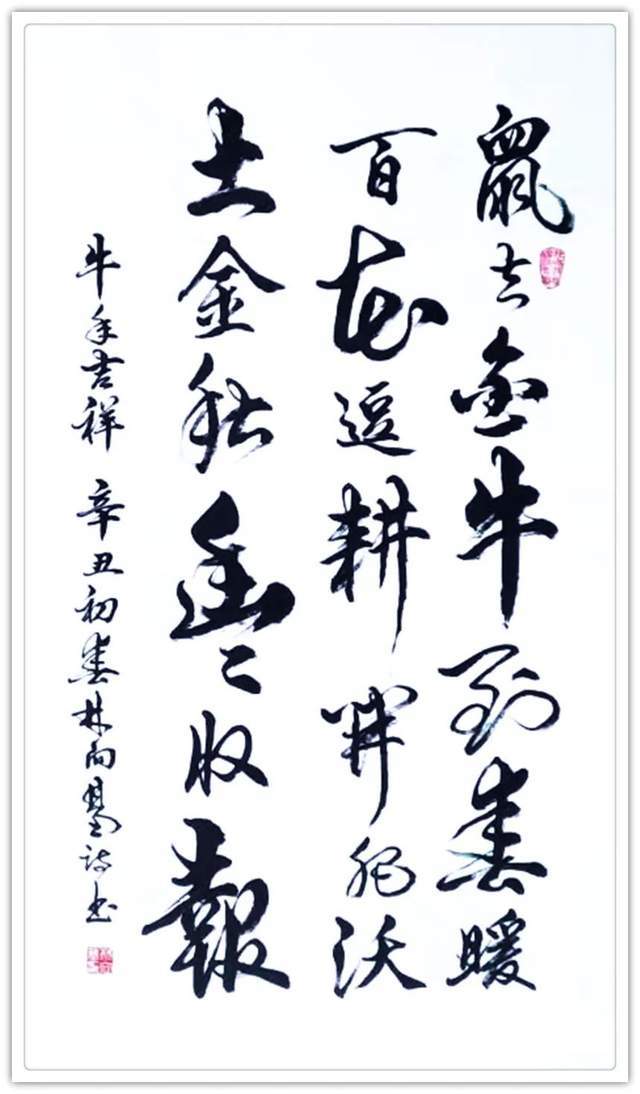 鼠去金牛到春暖
百花逗耕開肥沃
土金秋豐收報
牛年吉祥 辛丑初春林向詩书